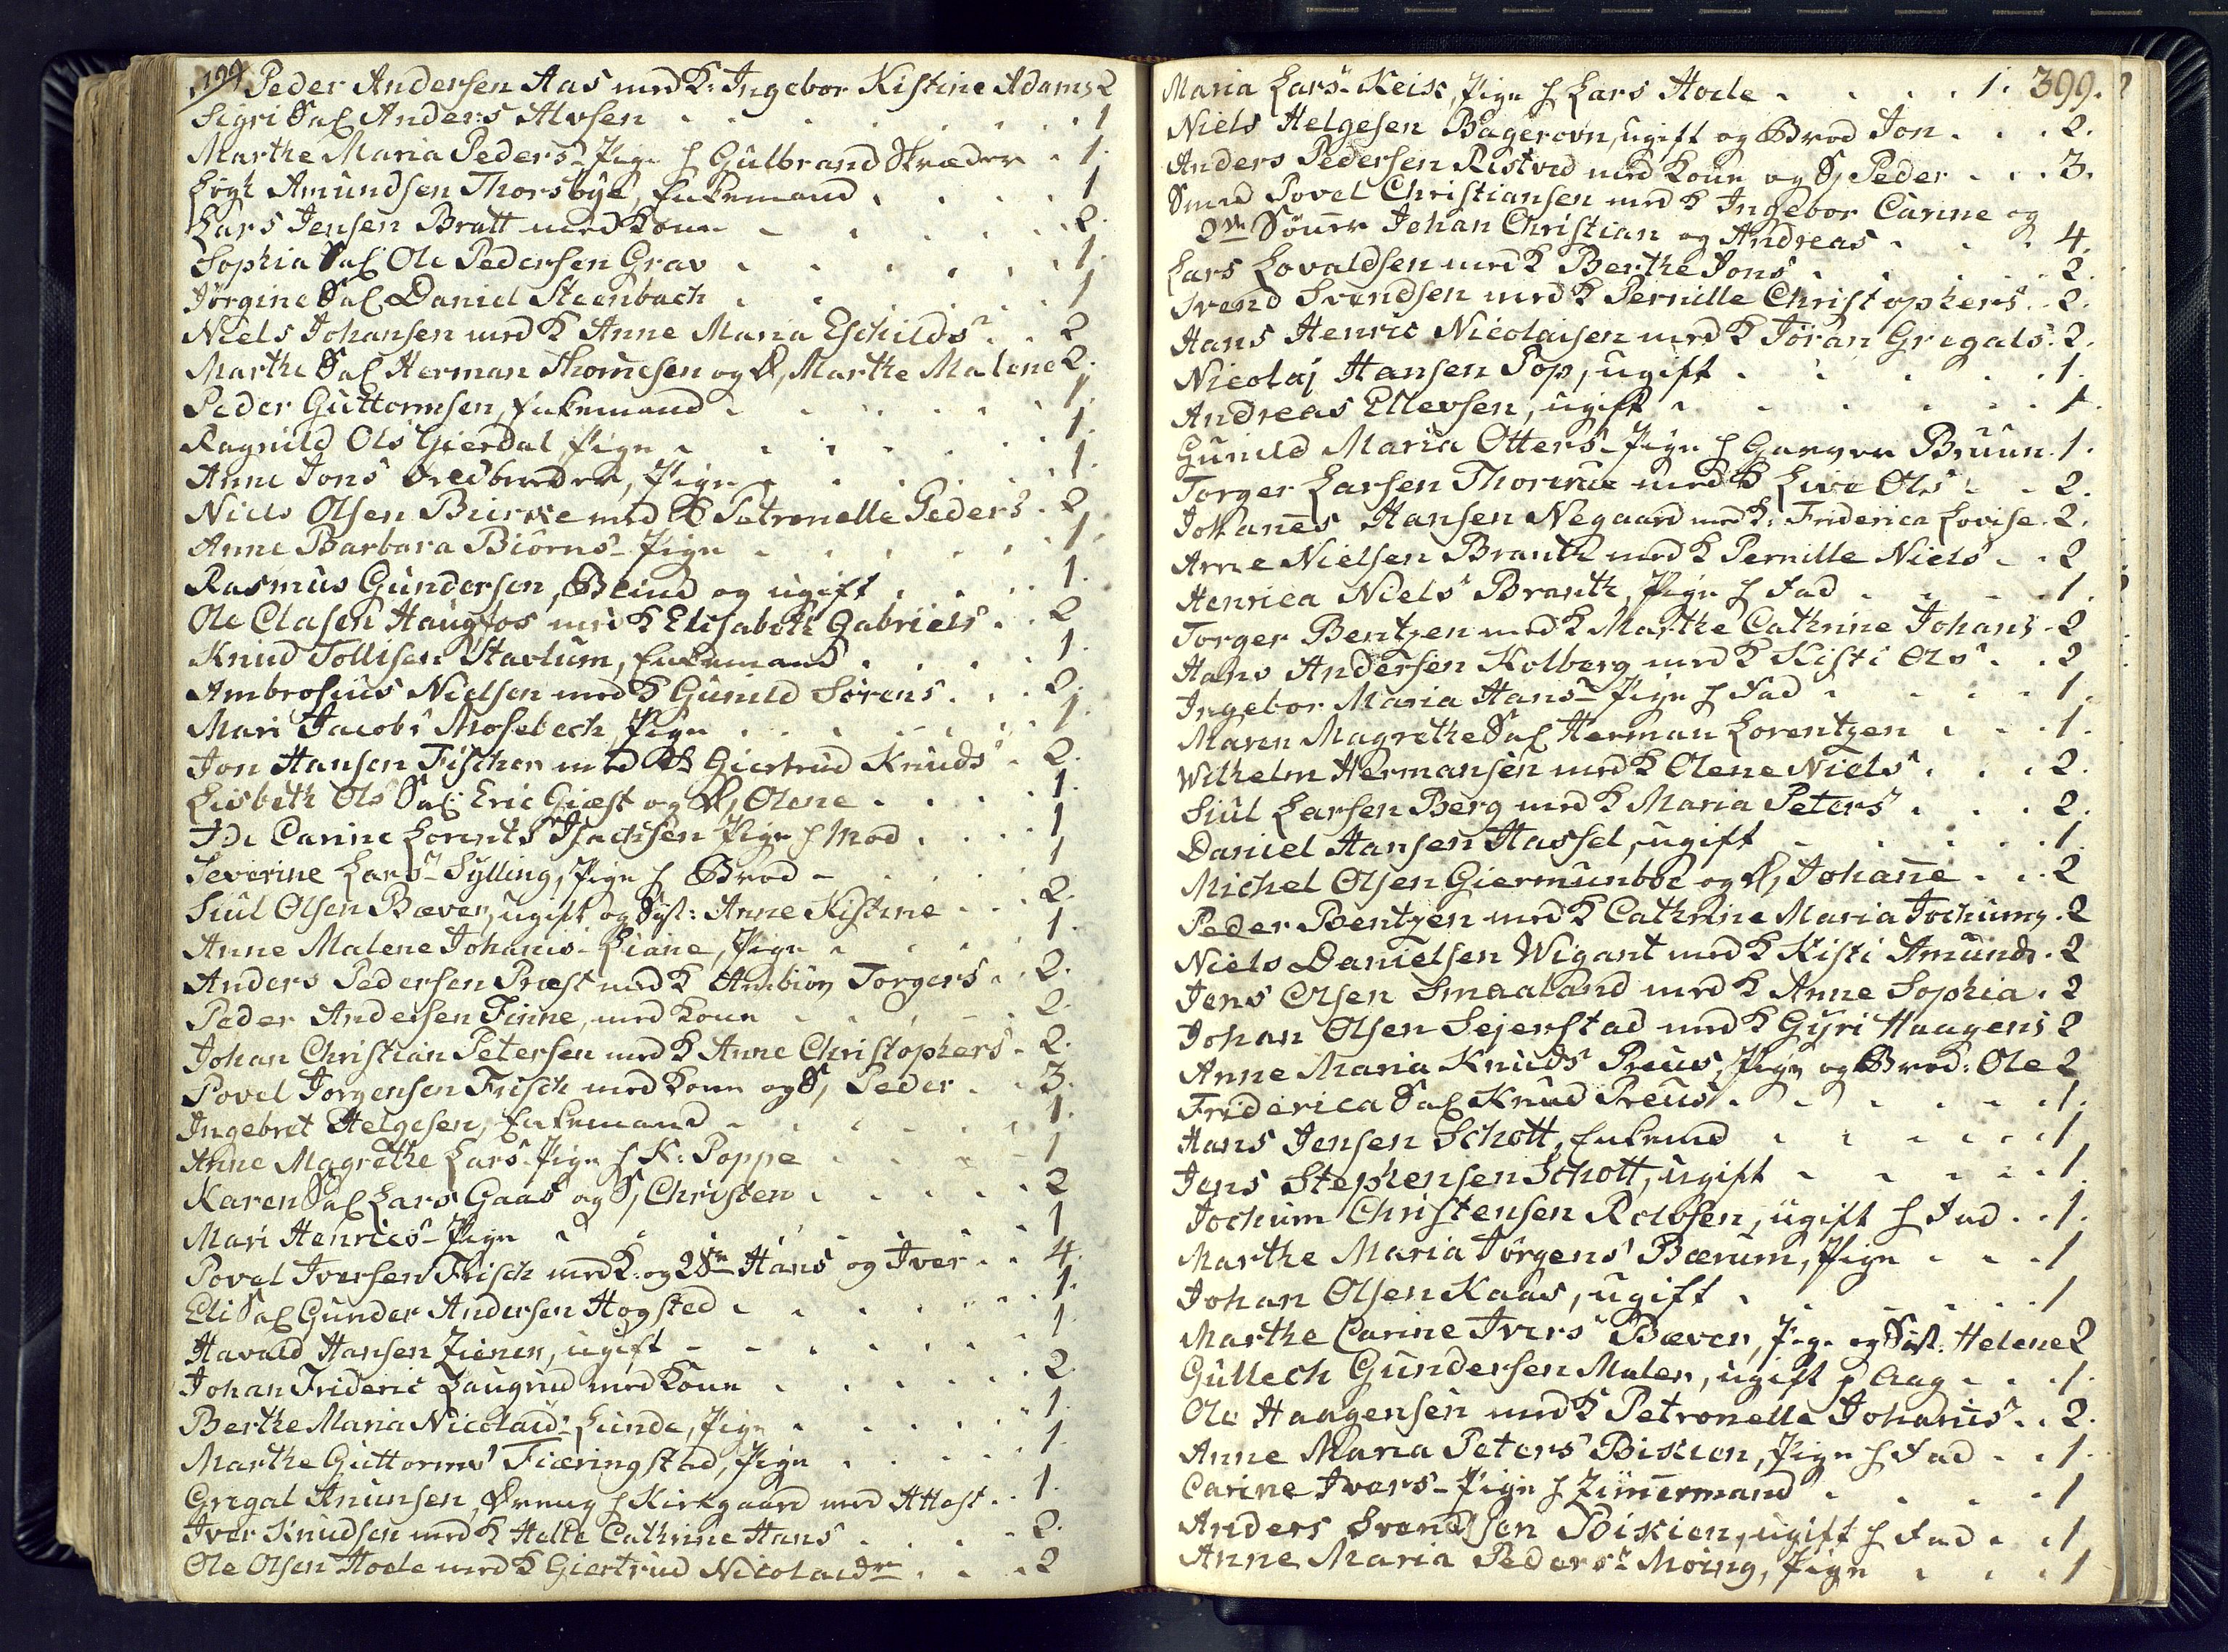 Peder Andersen Aas med K: Ingebor Kistine Adams 2
Sigri Sal Anders Alvsen 1
Marthe Maria Peders- Pige h Gulbrand Skræder 1.
Amundsen Thorsbye, Enkemand 1
Lars Jensen Bratt med Kone 2.
Sophia Sal Ole Pedersen Grav 1.
Jørgine Sal Daniel Steenbach 1
Niels Johansen med K Anne Maria Eschilds 2
Marthe Sal Herman Thomesen og D, Marthe Malene 2.
Peder Guttormsen, Enkemand 1.
Ragnild Ols Gierdal Pige 1.
Anne Jons Pige 1.
Niels Olsen Bierke med K Petronelle Peders 2
Anne Barbara Biørns- Pige 1.
Rasmus Gundersen, Blind og ugift 1.
Ole Clasen Haugfos med K Elisabeth Gabriels 2
Knud Tollisen Stavlum, Enkemand 1.
Ambrosius Nielsen med K Gunild Sørens 2.
Mari Jacobs Mosebech, Pige 1.
Jon Hansen Fischer med K Giertrud Knuds 2.
Lisbeth Ols Sal Eric Giæst og D, Olene 1.
Ide Carine Lorents Isachsen Pige h Mod 1
Severine Lars- Sylling, Pige h Brod 1
Siul Olsen Bæver, ugift og Syst: Anne Kistine 2.
Anne Malene Johanis- Liane, Pige 1.
Anders Pedersen Præst med K Anbiør Torgers 2.
Peder Andersen Finne, med Kone 2.
Johan Christian Petersen med K Anne Christophers 2.
Povel Jørgensen Frisch med Kone og S, Peder 3.
Ingebret Helgesen, Enkemand 1.
Anne Magrethe Lars- Pige h K: Poppe 1
Karen Sal Lars Gaas og S, Christen 2
Mari Henrics- Pige 1
Povel Iversen Frisch med K: og 2 Sr Hans og Iver 4.
Eli Sal Gunder Andersen Hogsted 1.
Havald Hansen Ziener, ugift 1
Johan Frideric Haugrud med Kone 2
Berthe Maria Nicolaid- Lunde, Pige 1.
Marthe Guttorms Fiæringstad, Pige 1.
Gregal Anunsen, Dreng h Kirkgaard med Attest 1.
Iver Knudsen med K Helle Cathrine Hans 2.
Ole Olsen Hoele med K Giertrud Nicolaidr 2
Maria Lars Keise, Pige h Lars Hoele 1. 399.
Niels Helgesen Bagerovn, ugift og Brod Jon 2.
Anders Pedersen Ristvedt med Kone og S, Peder 3.
Smed Povel Christiansen med K Ingebor Carine og
2de Sønner Johan Christian og Andreas 4.
Lars Lovaldsen med K Berthe Jons 2.
Svend Svendsen med K Pernille Christophers 2.
Hans Henric Nicolaisen med K Jøran Gregals 2.
Nicolaj Hansen Pop, ugift 1.
Andreas Ellevsen, ugift 1.
Gunild Maria Otters- Pige h Garver Bruun 1.
Torger Larsen Thorerue med K Live Ols 2.
Johanes Hansen Negaard med K: Friderica Lovise 2.
Arne Nielsen Branth med K Pernille Niels 2
Henrica Niels Branth, Pige h Fad 1.
Torger Bentzen med K Marthe Cathrine Johans 2
Hans Andersen Kolberg med K Kisti Ols 2
Ingebor Maria Hans- Pige h Fad 1.
Maren Magrethe Sal Herman Lorentzen 1.
Wilhelm Hermansen med K Olene Niels 2.
Siul Larsen Berg med K Maria Peters 2.
Daniel Hansen Hassel, ugift 1.
Michel Olsen Giermunboe og D, Johane 2
Peder Bentzen med K Cathrine Maria Jochums 2
Niels Danielsen Wigant med K Kisti Amunds 2
Jens Olsen Smaaland med K Anne Sophia 2
Johan Olsen Sejerstad med K Gyri Haagens 2
Anne Maria Knuds Preus, Pige og Brod: Ole 2
Friderica Sal Knud Preus 1.
Hans Jensen Schott, Enkemd 1.
Jens Stephensen Schott, ugift 1.
Jochum Christensen Rolvsen, ugift h Fad 1.
Marthe Maria Jørgens Bærum, Pige 1
Johan Olsen Kaas, ugift 1
Marthe Carine Ivers Bæver, Pige og Syst. Helene 2
Gullech Gundersen Maler, ugift p Aag 1.
Ole Haagensen med K Petronelle Johanis 2.
Anne Maria Peters Bixien, Pige h Fad 1.
Carine Ivers- Pige h Zimermand 1
Anders Svendsen Boixien, ugift h Fad 1
Anne Maria Peders- Moing, Pige 1